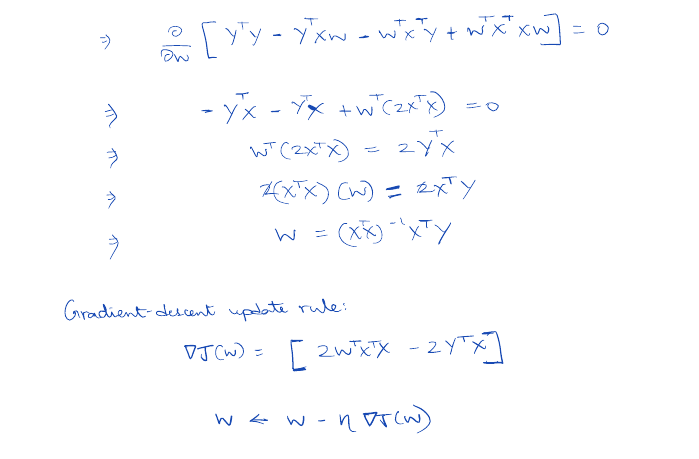 ⇒ ∂/∂w [ Y^T Y - Y^T X W - W^T X^T Y + W^T X^T X W ] = 0
⇒ - Y^T X - Y^T X + W^T (2X^T X) = 0
⇒ W^T (2X^T X) = 2 Y^T X
⇒ 2(X^T X) (W) = 2X^T Y
⇒ W = (X^T X)^-1 X^T Y
Gradient-descent update rule:
∇J(W) = [ 2W^T X^T X - 2 Y^T X ]
W ← W - η ∇J(W)